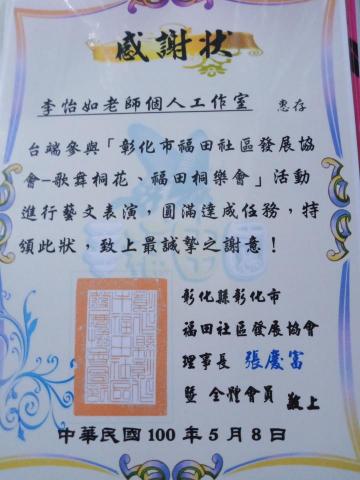 感謝狀
李怡如老師個人工作室 惠存
台端參與「彰化市福田社區發展協
會-歌舞桐花、福田桐樂會」活動
進行藝文表演，圓滿達成任務，特
頒此狀，致上最誠摯之謝意！
彰化縣彰化市
福田社區發展協會
理事長 張慶富
暨 全體會員 敬上
中華民國100年5月8日